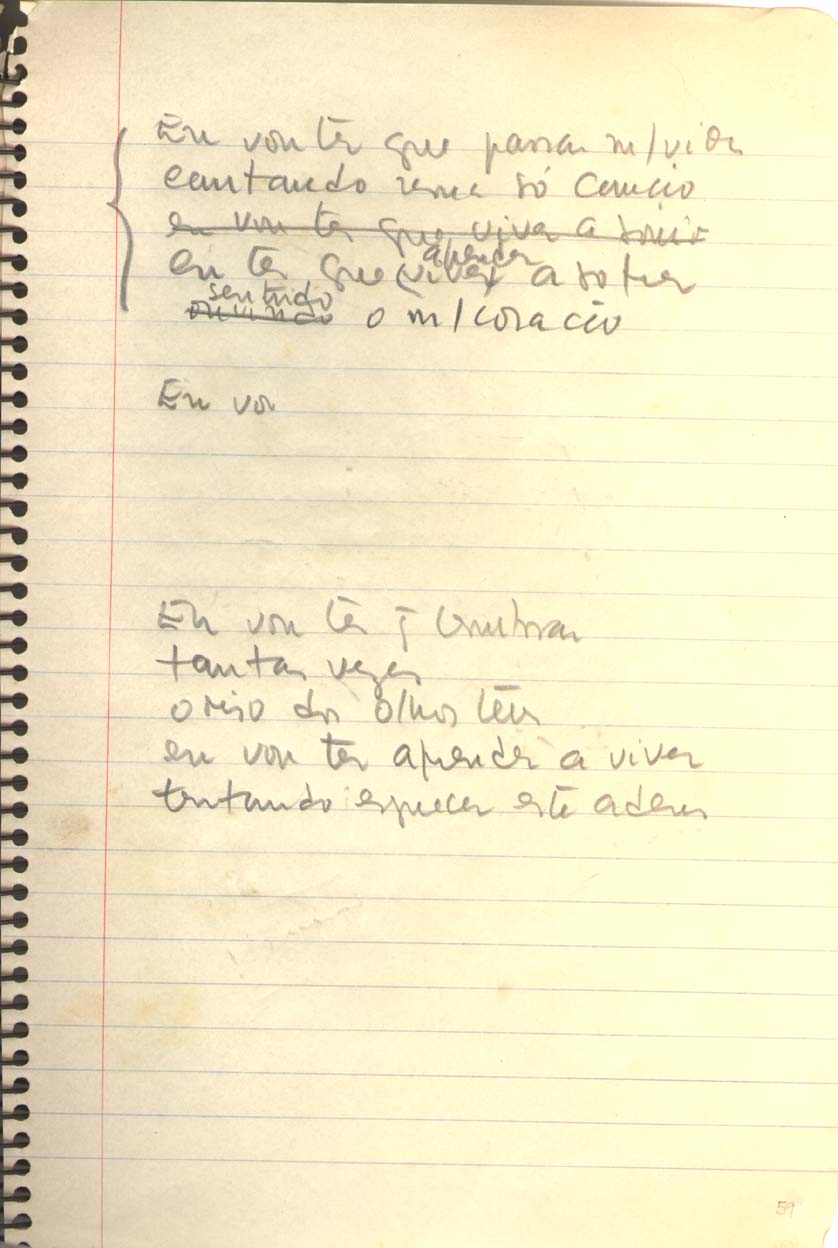 Eu vou ter que passar m/vida
cantando uma só canção
eu vou ter que viver a sorrir
aprender
eu ter que (viver) a sofrer
sentindo
ouvindo o m/coração
Eu vou
Eu vou ter q̄ lembrar
tantas vezes
o riso dos olhos teus
eu vou ter aprender a viver
tentando esquecer este adeus
59